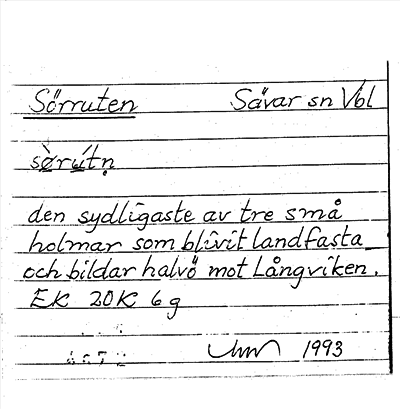 Sörruten Sävar sn Vbl
sø̀rút̀n̥
den sydligaste av tre små
holmar som blivit landfasta
och bildar halvö mot Långviken.
EK 20K 6g
1993